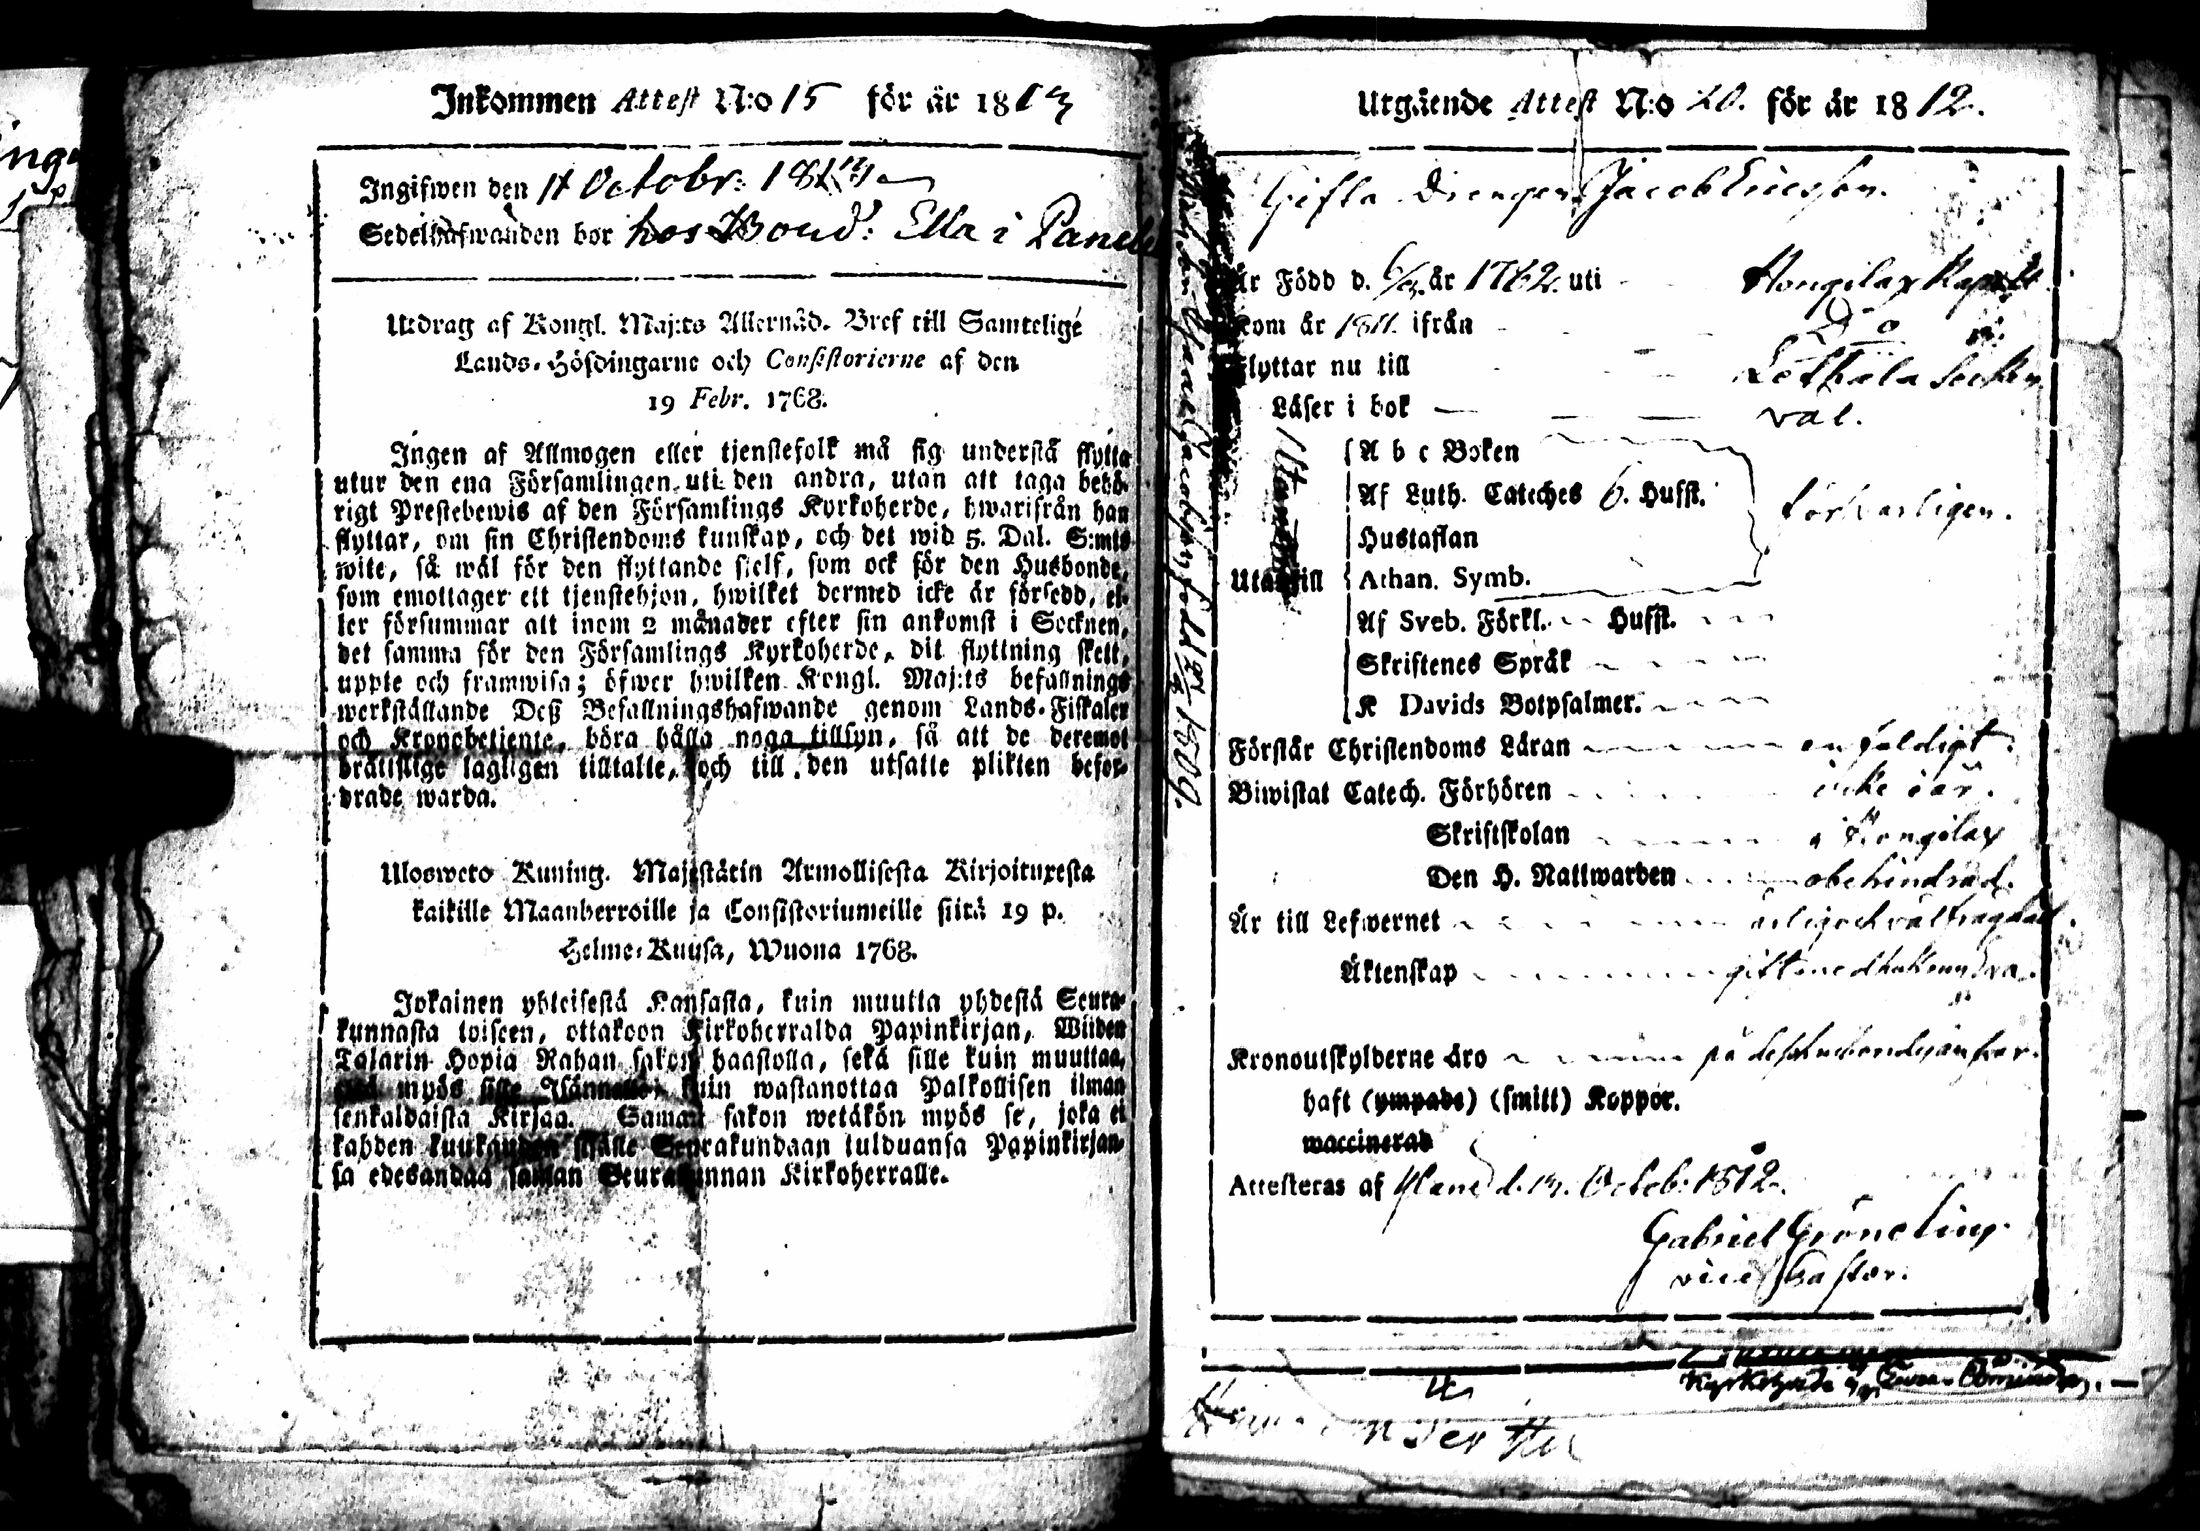 Inkommen Attest N:o 15 för år 1813
Ingifwen den 11 Octobr: 1813
Sedelhafwanden bor hos Bond: Ella i
Utdrag af Kongl. Maj:ts Allernåd. Bref till Samtelige
Lands-Höfdingarne och Consistorierne af den
19 Febr. 1768.
Ingen af Allmogen eller tjenstefolk må sig understå flytta
utur den ena Församlingen uti den andra, utan att taga behö-
rigt Prestebewis af den Församlings Kyrkoherde, hwarifrån han
flyttar, om sin Christendoms kunskap, och det wid 5. Dal. S:mts
wite, så wäl för den flyttande sjelf, som ock för den Husbonde,
som emottager ett tjenstehjon, hwilket dermed icke är försedd, el-
ler försummar att inom 2 månader efter sin ankomst i Socknen,
det samma för den Församlings Kyrkoherde, dit flyttning skett,
uppte och framwisa; öfwer hwilken Kongl. Maj:ts befallnings
werkställande Deß Befallningshafwande genom Lands-Fiskaler
och Kronobetjente, böra hålla noga tillsyn, så att de deremot
brätlslige lagligen tilltalte, och till den utsatte plikten befor-
drade warda.
Ulosweto Kuning. Majestätin Armollisesta Kirjoituxesta
kaikille Maanherroille ja Consistoriumeille siitä 19 p.
Helme-Kuusa, Wuona 1768.
Jokainen yhteisestä Kansasta, kuin muutta yhdestä Seura-
kunnasta toiseen, ottakoon Kirkoherralda Papinkirjan, Wiiden
Talarin Hopia Rahan sakon haastolla, sekä sille kuin muuttaa,
että myös sille Isännälle, kuin wastanottaa Palkollisen ilman
senkaldaista Kirjaa. Saman sakon wetäkön myös se, joka ei
kahden kuukauden sisälle Seurakundaan tulduansa Papinkirjan-
sa edesandaa saman Seurakunnan Kirkoherralle.
Utgående Attest N:o 20. för år 1812.
Gifta Drengen Jacob Ericsson.
Är Född d. 6/3. år 1762. uti Hongilax Kapell
Kom år 1811. ifrån Do
Flyttar nu till Letthala Socken
Läser i bok val.
A b c Boken
Af Luth. Cateches 6. Hufst. försvarligen.
Hustaflan
Utantill Athan. Symb.
Af Sveb. Förkl. Hufst.
Skriftenes Språk
K Davids Botpsalmer.
Förstår Christendoms Läran enfaldigt.
Biwistat Catech. Förhören icke i år.
Skriftskolan i Hongilax
Den H. Nattwarden obehindrad.
Är till Lefwernet ärlig och
Äktenskap gift med
Kronoutskylderne äro på dess husbondes ansvar.
haft (ympade) (smitt) Koppor.
waccinerad
Attesteras af Yläne d. 13. Octob: 1812.
Gabriel Gröneling
vice Pastor.